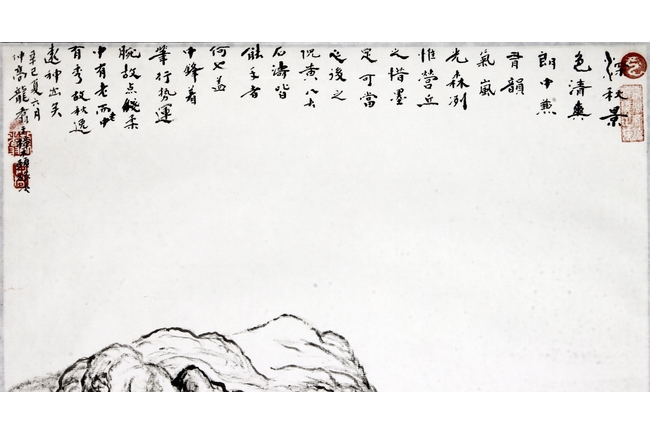 深秋景
色清爽
朗中兼
韻
氣嵐
光森冽
惟營丘
之惜墨
足可當
之後之
倪黃八大
石濤皆
能手者
何也蓋
中鋒着
筆行勢運
腕故点綫柔
中有老而中
有秀故秋逸
遠神出矣
辛巳夏六月
仲高龍